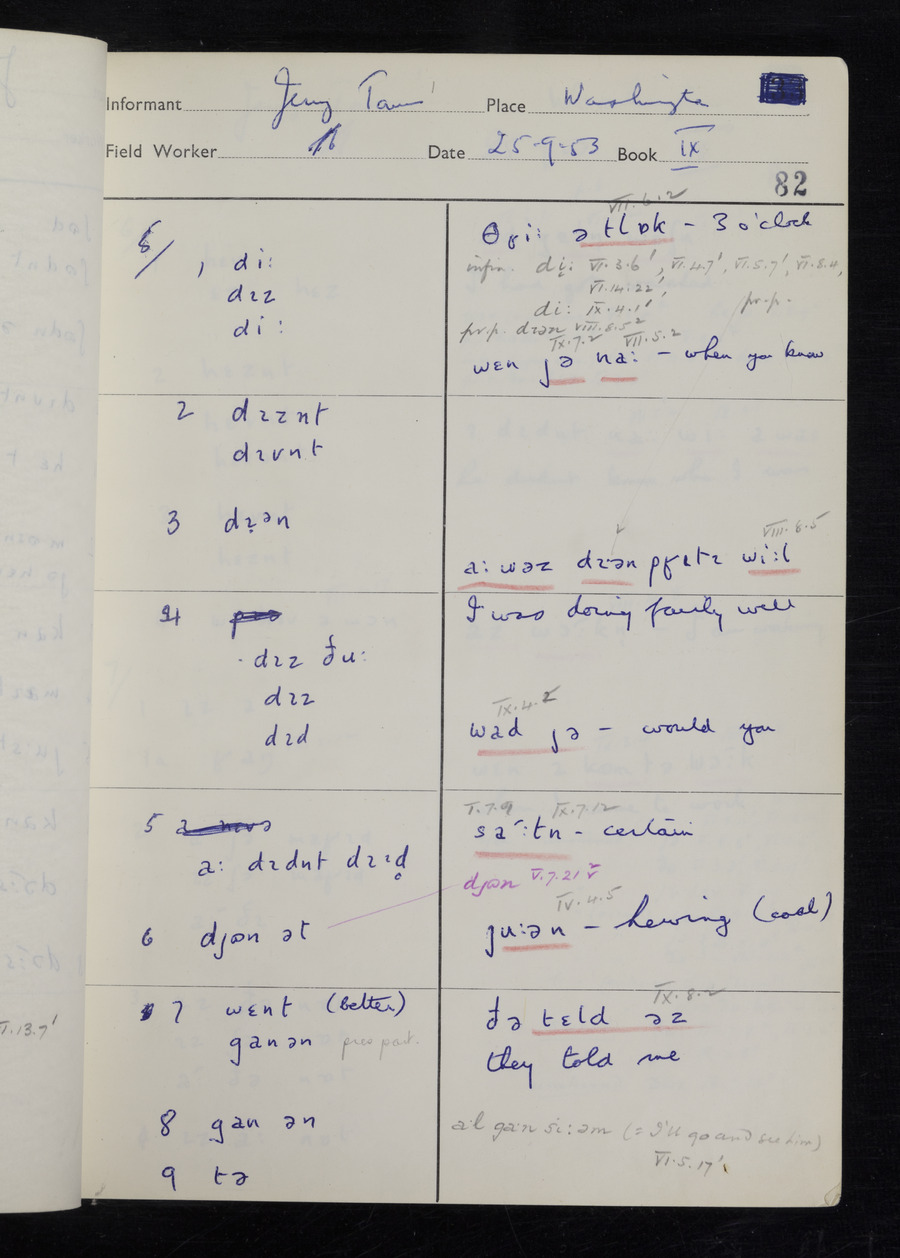 Informant Jerry Place Washington
Field Worker Date 25-9-53 Book IX
82
VII.6.2
5/ 1 di: θɾi: ə tlɒk - 3 o'clock
infin. di̜: VI.3.6', VI.4.7', VI.5.7', VI.8.4,
dɪz VI.14.22',
di: IX.4.1' pr.p.
di: pr.p. dɪən VIII.8.5²
IX.7.2 VII.5.2
wɛn jə na: - when you know
2 dɪznt
dɪvnt
3 dɪ̣ən
VIII.8.5
a: wəz dɪən wi:l
4 I was doing fairly well
dɪz ðu:
dɪz
IX.4.2
dɪd wad jə - would you
I.7.9 IX.7.12
5 saˑ:tn - certain
a: dɪdnt dɪɪd̥
djɒn V.7.21
IV.4.5
6 djɒn ət ju:ən - hewing (coal)
IX.8.2
7 wɛnt (better) ðə tɛld əz
ganən pres part. they told me
8 gan ən a'l gan si:əm (= I'll go and see him)
VI.5.17'
9 tə
I.13.7'